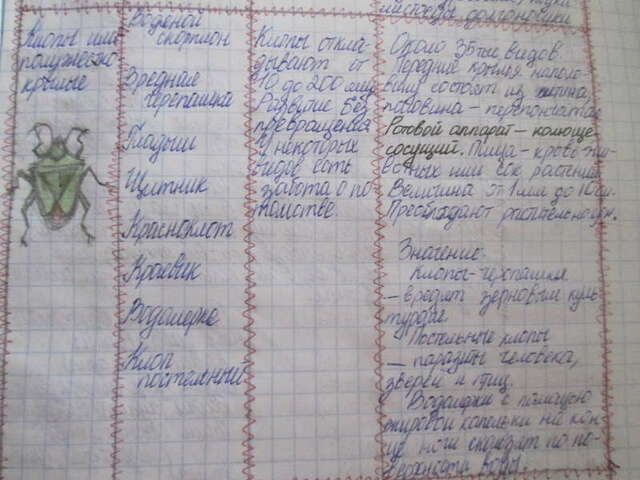 долгоносики
Клопы или
полужестко
крылые
Водяной
скорпион
Вредная
черепашка
Гладыш
Щитник
Красноклоп
Краевик
Водомерка
Клоп
постельный
Клопы откла-
дывают от
10 до 200 яиц
Развитие без
превращения
У некоторых
видов есть
забота о по-
томстве.
Около 35 тыс видов.
Передние крылья наполо-
вину состоят из хитина
половина - перепончатая
Ротовой аппарат - колюще-
сосущий. Пища - кровь жи-
вотных или сок растений
Величина от 1 мм до 10 см.
Преобладают растительнояд.
Значение:
Клопы-черепашки
- вредят зерновым куль-
турам.
Постельные клопы
- паразиты человека,
зверей и птиц.
Водомерки с помощью
жировой капельки на кон-
це ноги скользят по по-
верхности воды.